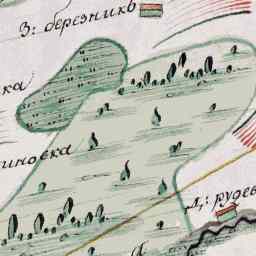 З: березникъ
ка
иновка
Д: рудев